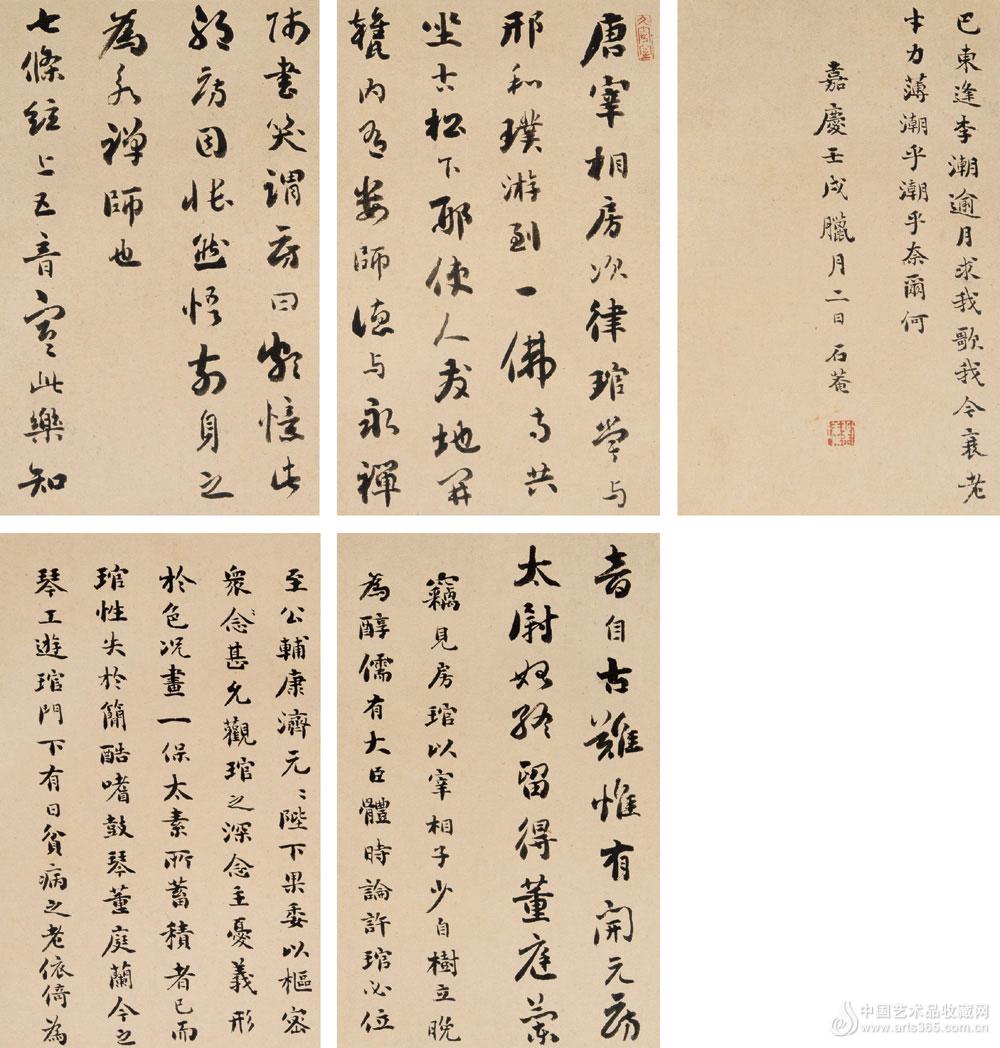 唐宰相房次律琯嘗與
邢和璞游到一佛寺共
坐古松下邢使人發地開
甕内有婁師德与永禪
師書笑謂房曰頗憶此
耶房因悵然悟前身之
為永禪師也
七條絃上五音寒此樂知
音自古難惟有開元房
太尉始終留得董庭蘭
竊見房琯以宰相子少自樹立晚
為醇儒有大臣體時論許琯必位
至公輔康濟元〻陛下果委以樞密
衆念甚允觀琯之深念主憂義形
於色况畫一保太素所蓄積者已而
琯性失於簡酷嗜鼓琴董庭蘭今之
琴工遊琯門下有日貧病之老依倚為
巴東逢李潮逾月求我歌我今衰老
才力薄潮乎潮乎奈爾何
嘉慶壬戌臘月二日石菴
中国艺术品收藏网
www.arts365.com.cn